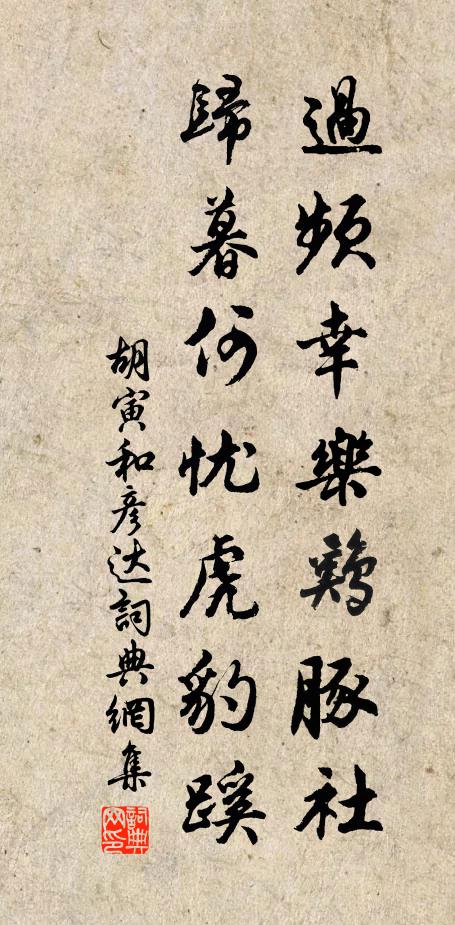 過頻幸樂鷄豚社
歸暮何忧虎豹蹊
胡寅和彦达詞典網集
詞典网印